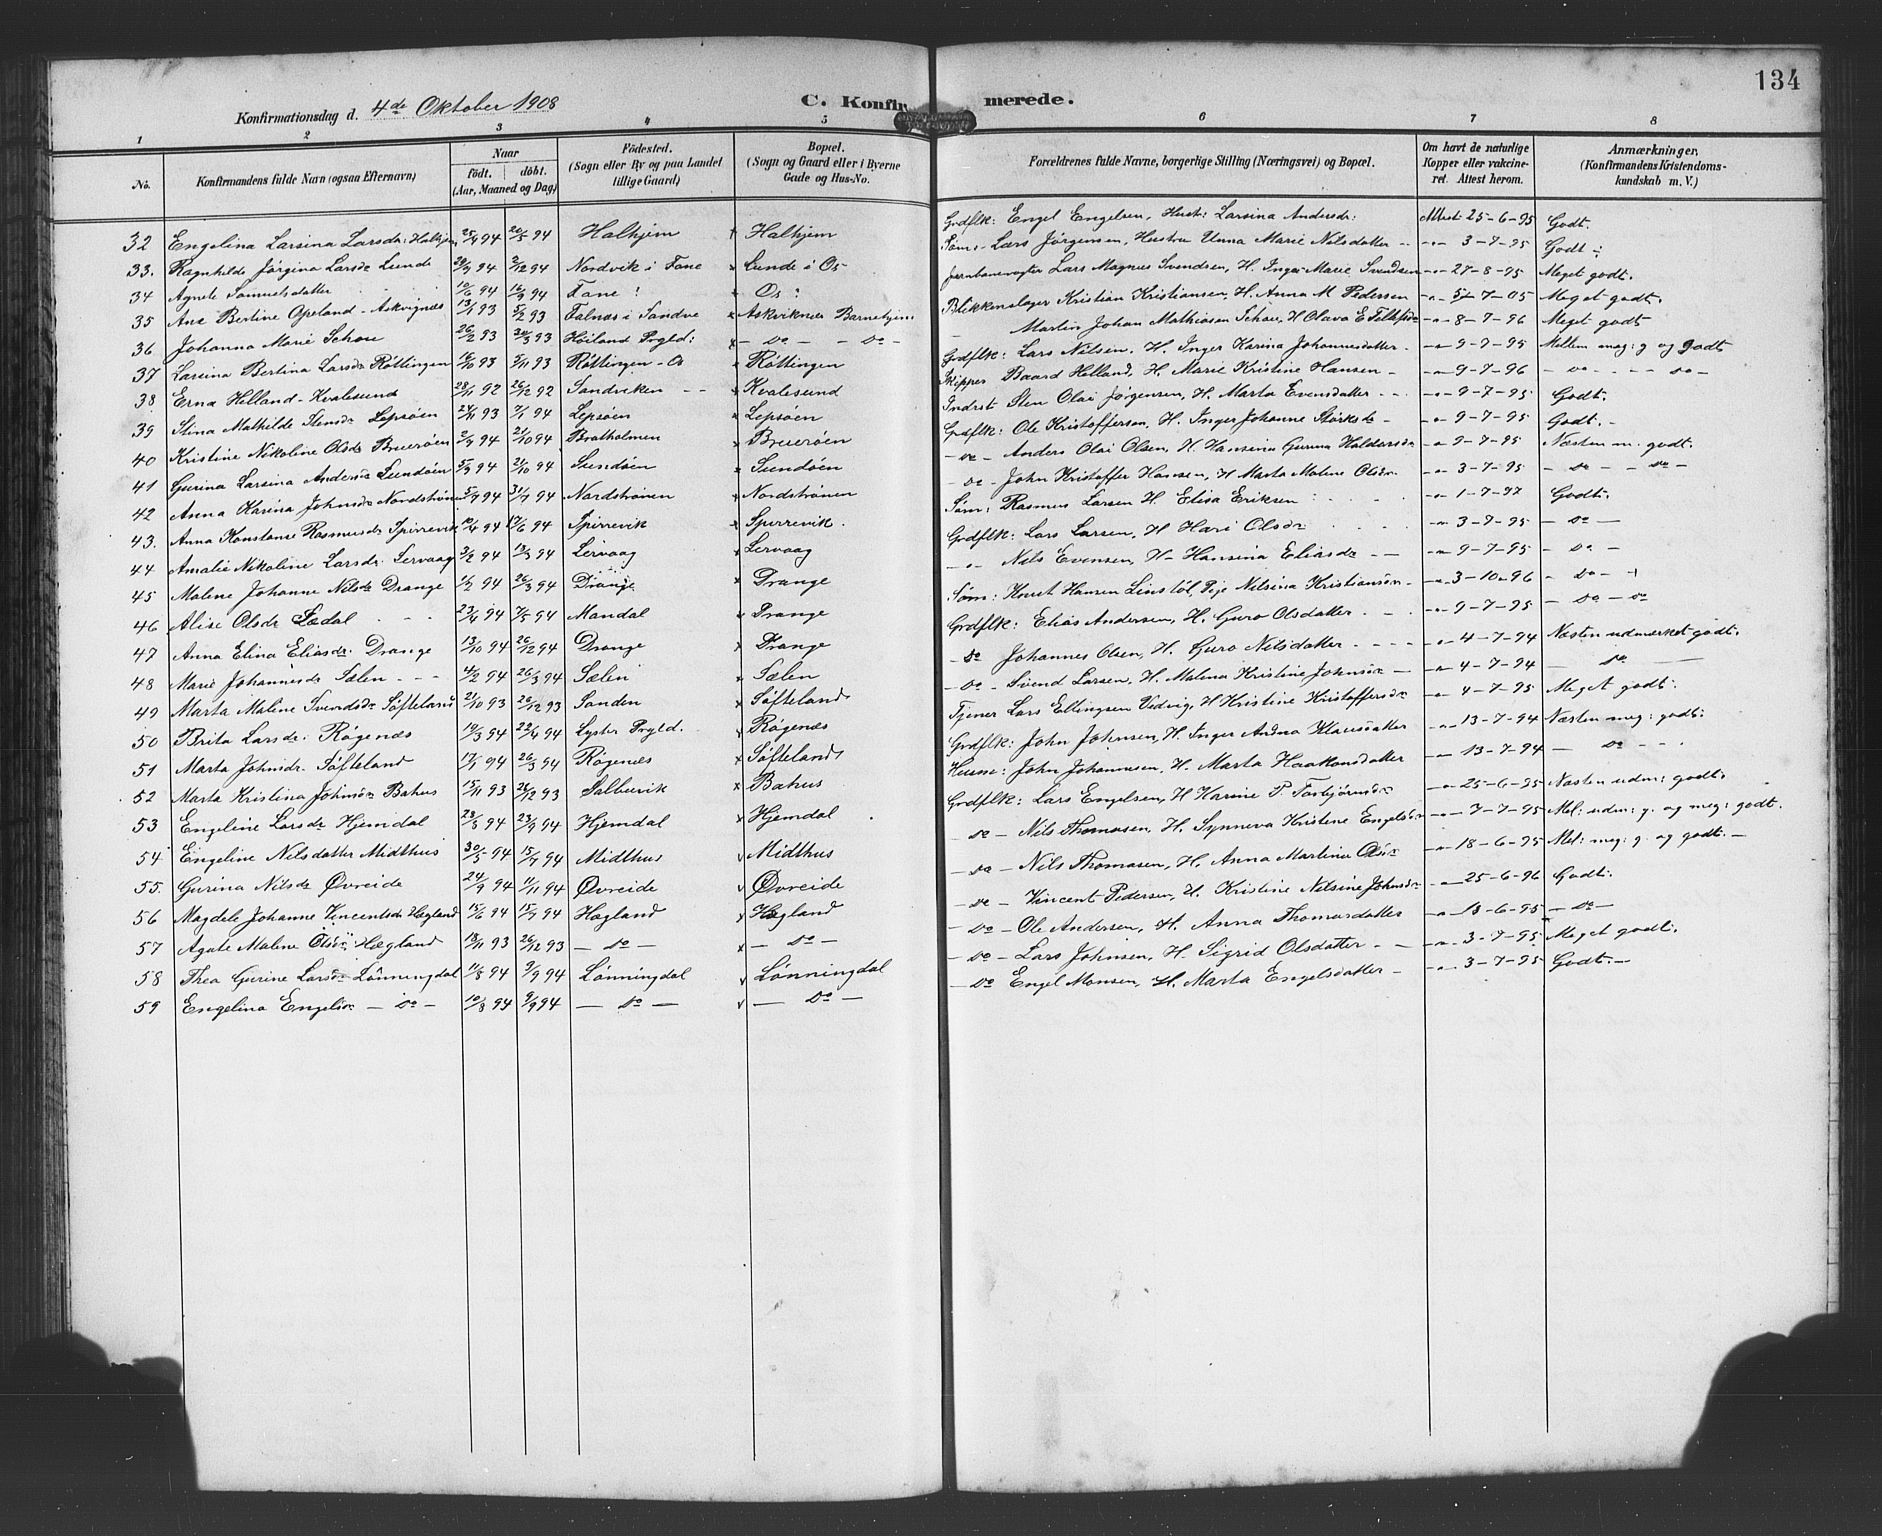 134
Konfirmationsdag d. 4de Oktober 1908 C. Konfir merede.
1 2 3 4 5 6 7 8
No. Konfirmandens fulde Navn (ogsaa Efternavn) Naar født. døbt. (Aar, Maaned og Dag) Fødested. (Sogn eller By og paa Landet tillige Gaard) Bopæl. (Sogn og Gaard eller i Byerne Gade og Hus-No. Forældrenes fulde Navne, borgerlige Stilling (Næringsvei) og Bopæl. Om havt de naturlige Kopper eller vaccineret. Attest herom. Anmærkninger, (Konfirmandens Kristendomskundskab m. V.)
32 Engelina Larsina Larsdr: Halhjem 25/4 94 20/5 94 Halhjem Halhjem Grdflk: Engel Engelsen, Hust: Larsina Andersdr: Attest 25-6-95 Godt.
33. Ragnhilde Jørgina Larsdr Lunde 94 2/12 94 Nordvik i Fane Lunde i Os Søm: Lars Jørgensen, Hustru Unna Marie Nilsdatter - " - 3-7-95 Godt:
34 Agnete Samuelsdatter 10/6 94 16/9 94 Fane: Os: Jernbanevogter Lars Magnus Svendsen, H. Inger Marie Svendsen - " - 27-8-95 Meget godt.
35 Ane Bertine Opeland - Askvignes 13/1 93 5/2 93 Falnæs i Sandve Askviknes Barnehjem Blikkenslager Kristian Kristiansen, H. Anna M Pedersen - " - 5-7-05 Meget godt.
36 Johanna Marie Schou 26/2 93 93 Høiland Prgld: - do - - do - Martin Johan Mathiasen Schou, H Olava E - " - 8-7-96 Meget godt
37 Larsina Bertina Larsdr Røttingen 16/10 93 5/11 93 Røttingen - Os Røttingen Grdflk: Lars Nilsen, H. Inger Karina Johannesdatter - " - 9-7-95 Mellem meg: g og godt
38 Erna Helland - Kvalesund 28/11 92 26/12 92 Sandviken - - Kvalesund Skipper Baard Helland, H. Marie Kristine Hansen - - " - 9-7-96 - do - - - - do -
39 Stina Mathilde Stensdr Lepsøen 24/11 93 7/1 94 Lepsøen Lepsøen Indrst Sten Olai Jørgensen, H. Marta Evensdatter - - - " - 9-7-95 Godt:
40 Kristine Nikoline Olsdr Bruerøen 2/9 94 21/10 94 Bratholmen Bruerøen Grdflk: Ole Kristoffersen, H. Inger Johanne Størksdr - - " - 9-7-95 Godt. -
41 Gurina Larsina Andersdr Sundøen 5/9 94 21/10 94 Sundøen Sundøen - do - Anders Olai Olsen, H. Hansina Gurina Haldorsdr - " - 9-7-95 Næsten m. godt.
42 Anna Karina Johnsdr Nordstrønen 94 94 Nordstrønen Nordstrønen - do - John Kristoffer Hansen, H Marta Malene Olsdr - " - 3-7-95 - do - - do -
43. Anna Konstanse Rasmusdr Spirrevik 10/4 94 17/6 94 Spirrevik Spurrevik. Søm: Rasmus Larsen H. Elisa Eriksen - " - 1-7-97 Godt:
44 Amalie Nikoline Larsdr Lervaag 2/2 94 94 Lervaag Lervaag Grdflk: Lars Larsen, H Hari Olsdr - " - 3-7-95 - do -
45 Malene Johanne Nilsdr Drange 94 26/3 94 Drange Drange - " - Nils Evensen, H- Hansina Eliasdr - - - " - 9-7-95 - do -
46 Alise Olsdr Lædal - - - 23/4 94 7/5 94 Mandal Drange Søm: Knut Hansen Linstøl, Pige Nilsina Kristiansen - - " - 3-10-96 - do -
47 Anna Elina Eliasdr: Drange 13/10 94 26/12 94 Drange Drange Grdflk: Elias Andersen, H. Guro Olsdatter - - - " - 9-7-95 - do - do
48 Marie Johannesdr Sælen - - - 4/2 94 26/3 94 Sælen Sælen - do Johannes Olsen, H. Guro Nilsdatter - - - - - " - 4-7-94 Næsten udmerket godt.
49 Marta Malene Svendsdr Søfteland 21/10 93 26/12 93 Sanden Søfteland - do - Svend Larsen, H. Malina Kristine Johnsdr - - " - 4-7-94 - do -
50 Brita Larsdr: Røgenæs 10/3 94 22/4 94 Lyster Prgld. Røgenæs Tjener Lars Ellingsen Vedvig, H Kristine Kristoffersdr - " - 4-7-95 Meget godt:
51 Marta Johnsdr: Søfteland 17/1 94 26/3 94 Røgenæs Søfteland Grdflk: John Johnsen, H. Inger Andrea Klausdatter - " - 13-7-94 Næsten meg: godt:
52 Marta Kristina Johnsdr Bahus 15/11 93 26/12 93 Salbuvik Bahus Husm: John Johannesen, H. Marta Haakonsdatter - " - 13-7-94 - do - - -
53 Engeline Larsdr Hjemdal 23/8 94 23/9 94 Hjemdal Hjemdal Grdflk: Lars Engelsen, H Karine P. Torbjørnsdr - " - 25-6-95 Næsten udm: godt.
54 Engeline Nilsdatter Midthus 30/5 94 15/7 94 Midthus Midthus - do - Nils Thomasen, H. Synneva Kristine Engelsdr - " - 7-7-95 Mel: udm: g. og meg: godt.
55. Gurina Nilsdr Øvreide 24/9 94 11/11 94 Øvreide Øvreide - do - Nils Thomasen, H. Anna Martina Olsdr - " - 18-6-95 Mel: meg: g. og godt: -
56 Magdele Johanne Vincentsdr Hægland 15/6 94 15/7 94 Hægland Hægland - do - Vincent Pedersen, H. Kristine Nilsine Johnsdr - " - 25-6-96 Godt:
57 Agate Malene Olsdr Hægland 18/11 93 26/12 93 - do - - do - - do - Ole Andersen, H. Anna Thomasdatter - " - 13-6-95 - do -
58 Thea Gurine Larsdr Lønningdal 11/8 94 9/9 94 Lønningdal Lønningdal - do - Lars Johnsen, H. Sigrid Olsdatter - - - " - 3-7-95 Meget godt:
59 Engelina Engelsdr - do - 10/8 93 9/9 94 - do - - do - - do Engel Monsen, H. Marta Engelsdatter - - " - 3-7-95 Godt: -